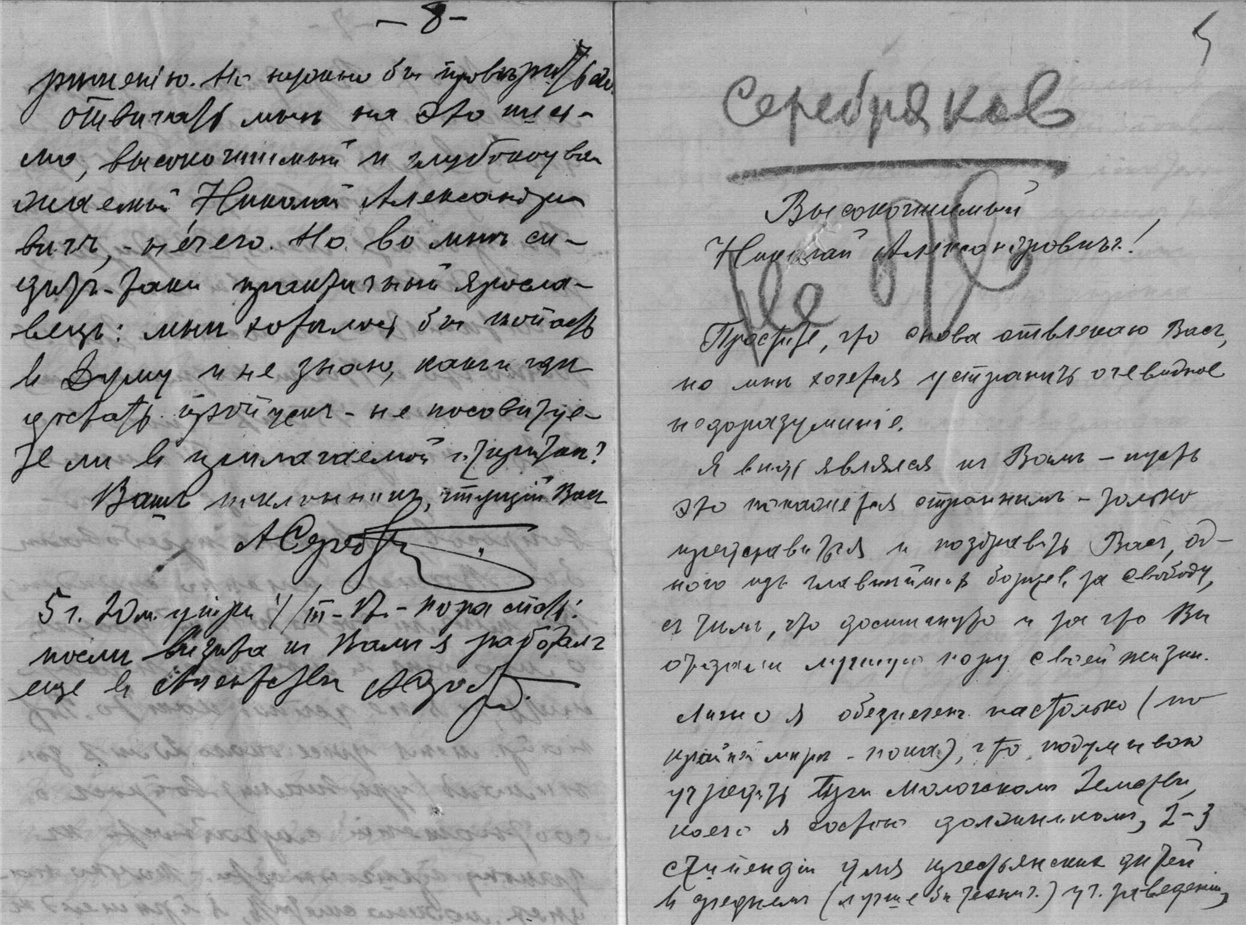 - 8 -
ршенію. Не нужно бы
отвичать мнѣ на это пись-
мо, высокочтимый и глубокоува
жаемый Николай Александро
вичъ, - нечего. Но во мнѣ си-
дитъ-таки практичный яросла-
вецъ: мнѣ хотѣлось бы попасть
в Думу и не знаю, какъ и гдѣ
достать пропускъ - не посовѣтуе-
те ли в прилагаемой
Вашъ поклонникъ, чтущій Васъ
АСереб
5 г. 20 м. утра 4/III-17 - пора спать:
послѣ визита къ Вамъ я работалъ
еще в Агентствѣ
5
Серебряков
Высокочтимый
Николай Александровичъ!
Не
Простите, что снова отвлекаю Васъ,
но мнѣ хотется устранить очевидное
недоразумѣніе.
Я вчера являлся къ Вамъ - пусть
это покажется страннымъ - только
представиться и поздравить Васъ, од-
ного изъ главнѣйшихъ борцев за свободу,
съ тѣмъ, что достигнуто и за что Вы
отдали лучшую пору своей жизни.
Лично я обезпеченъ настолько (по
крайней мѣрѣ - пока), что подумываю
учредить при Мологскомъ Земствѣ,
коего я состою должникомъ, 2-3
стипендіи для крестьянскихъ дѣтей
в среднемъ (лучше бы технич.) уч. заведеніи,